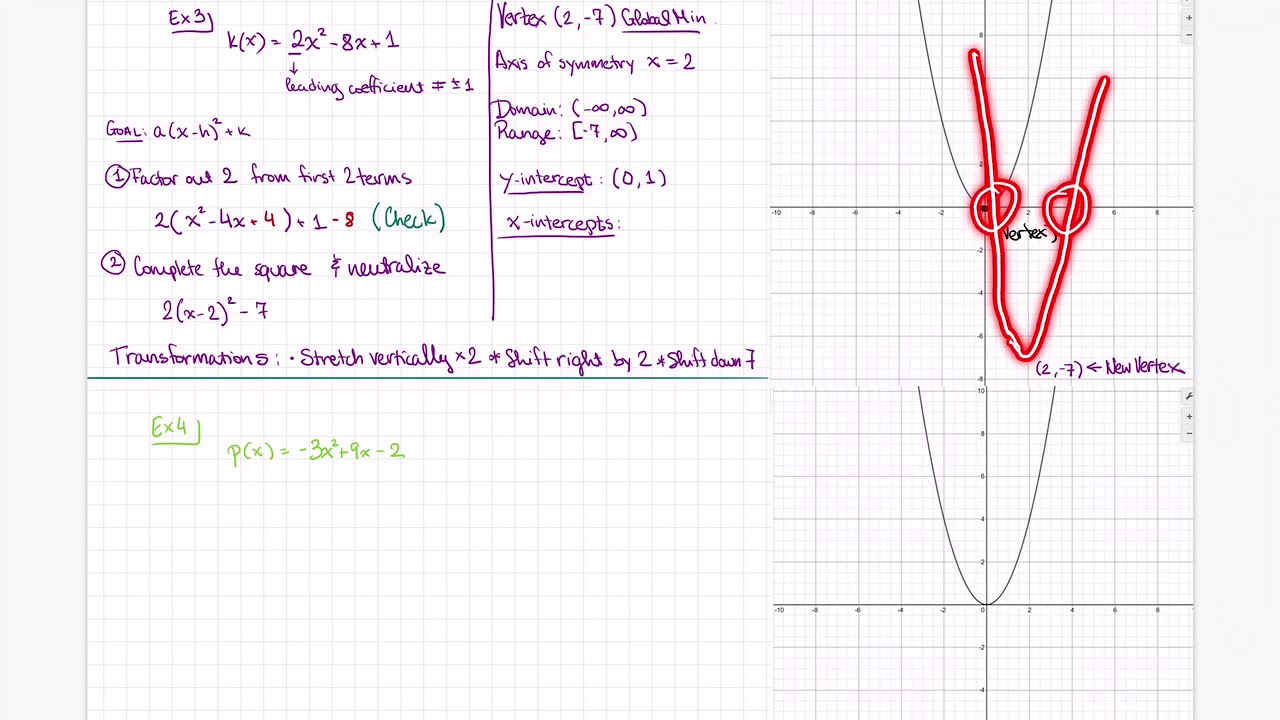 Ex3
k(x) = 2x² - 8x + 1
↓
leading coefficient ≠ ±1
GOAL: a(x-h)² + k
① Factor out 2 from first 2 terms
2(x² - 4x + 4) + 1 - 8 (Check)
② Complete the square & neutralize
2(x-2)² - 7
Vertex (2, -7) Global Min.
Axis of symmetry x = 2
Domain: (-∞, ∞)
Range: [-7, ∞)
y-intercept: (0, 1)
x-intercepts:
Transformations: • Stretch vertically ×2 * Shift right by 2 * Shift down 7
8
2
-10 -8 -6 -4 -2 2 6 8
Vertex
-2
-4
-6
-8
(2, -7) ← New Vertex
Ex4
p(x) = -3x² + 9x - 2
10
8
6
4
2
-10 -8 -6 -4 -2 0 2 4 6 8
-2
-4